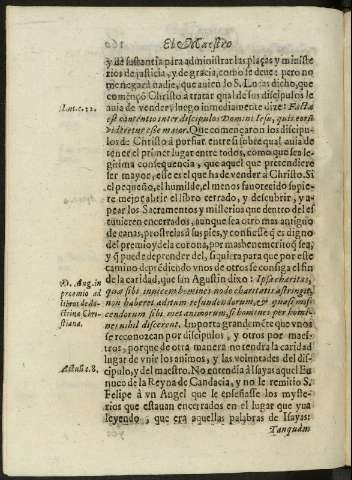 El Maestro
y dé sustantia para administrar las plaças y ministe
rios de justicia, y de gracia, como se deue: pero no
me negarà nadie, que auien lo S. Lucas dicho, que
començò Christo à tratar qual de sus discipulos le
auia de vender, luego inmediatamente dize: Facta
est contentio inter discipulos Domini Iesu, quis eorũ
videretur esse maior. Que començaron los discipu
los de Christo à porfiar entre si sobre qual auia de
tener el primer lugar entre todos, como que sea le
gitima consequencia, que aquel que pretendiere
ser mayor, esse es el que ha de vender à Christo. Si
el pequeño, el humilde, el menos fauorecido supie
re mejor abrir el libro cerrado, y descubrir, y a
pear los Sacramentos y misterios que dentro del es
tuuieren encerrados, aunque sea otro mas antiguo
de canas, prostrelas à sus pies, y confiesse q̃ es digno
del premio y de la corona, por mas benemerito q̃ sea,
y q̃ puede deprender del, siquiera para que por este
camino deprẽdiẽdo vnos de otros se consiga el fin
de la caridad, que san Agustin dixo: Ipsa charitas,
qua sibi inuicem homines nodo charitatis astringit,
non haberet aditum refundendorum, & quasi mis
cendorum sibimet animorum, si homines per homi
nes nihil discerent. Importa grandemẽte que vnos
se reconozcan por discipulos, y otros por maes-
tros, porque de otra manera no tendra la caridad
lugar de vnir los animos, y las volũtades del dis-
cipulo, y del maestro. No entendia à Isayas aquel Eu
nuco de la Reyna de Candacia, y no le remitio S.
Felipe à vn Angel que le enseñasse los myste-
rios que estauan encerrados en el lugar que yua
leyendo, que era aquellas palabras de Isayas:
Tanquàm
Luc. c. 22.
D. Aug. in
proemio al
libros de do
ctrina Chri
stiana.
Actuũ c. 8.